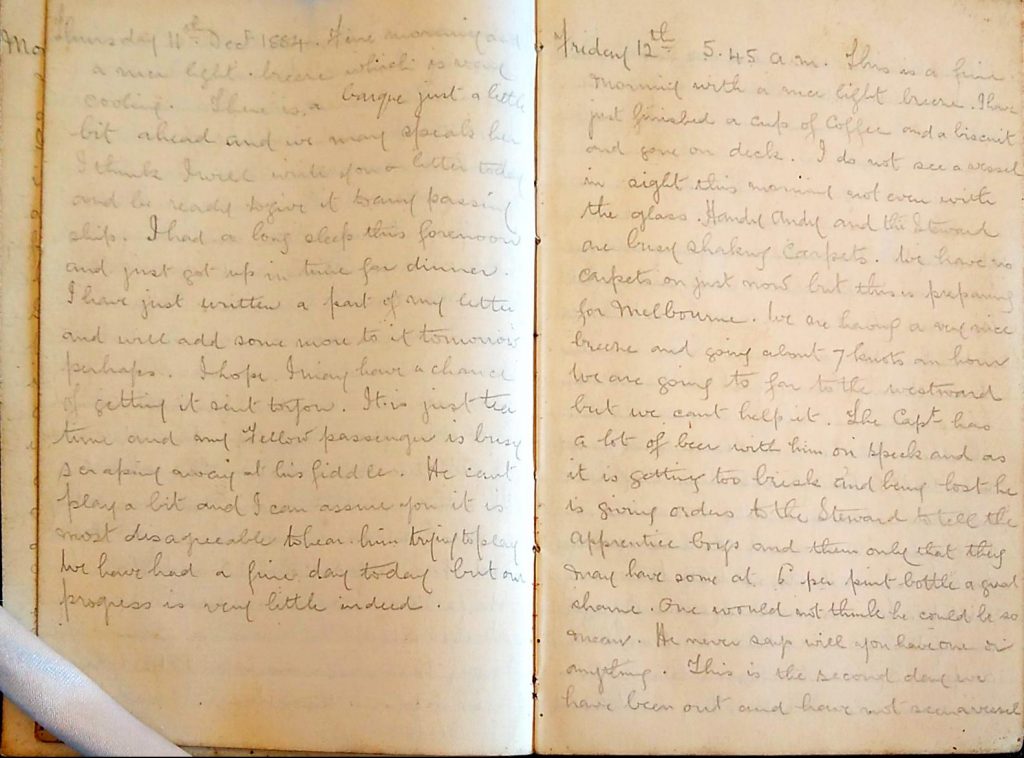 Mo
Thursday 11th Decr 1884. Fine morning and
a nice light breeze which is very
cooling. There is a barque just a little
bit ahead and we may speak her
I think I will write you a letter today
and be ready to give it to any passing
ship. I had a long sleep this forenoon
and just got up in time for dinner.
I have just written a part of my letter
and will add some more to it tomorrow
perhaps. I hope I may have a chance
of getting it sent to you. It is just tea
time and my Fellow passenger is busy
scraping away at his fiddle. He cant
play a bit and I can assure you it is
most disagreeable to hear him trying to play
We have had a fine day today but our
progress is very little indeed.
Friday 12th 5.45 a.m. This is a fine
morning with a nice light breeze. I have
just finished a cup of Coffee and a biscuit
and gone on deck. I do not see a vessel
in sight this morning not even with
the glass. Handy Andy and the Steward
are busy shaking Carpets. We have no
carpets on just now but this is preparing
for Melbourne. We are having a very nice
breeze and going about 7 knots an hour
We are going to far to the westward
but we cant help it. The Capt has
a lot of beer with him on speck and as
it is getting too brisk and being lost he
is giving orders to the Steward to tell the
apprentice boys and them only that they
may have some at 6 per pint bottle a great
shame. One would not think he could be so
mean. He never says will you have one or
anything. This is the second day we
have been out and have not seen a vessel